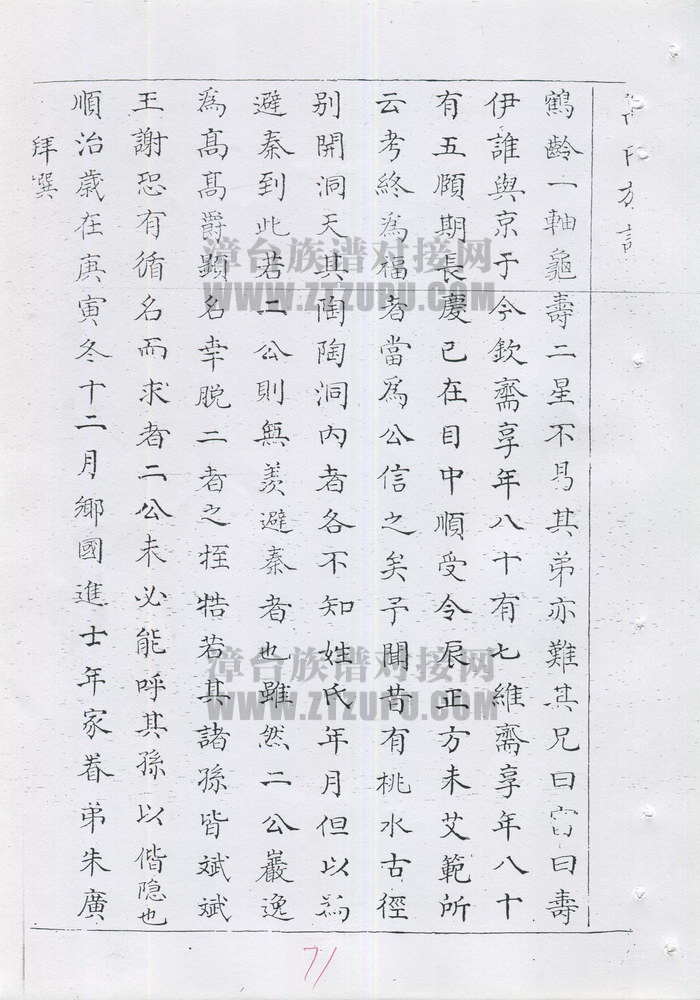 鶴齡一軸龜壽二星不易其弟亦難其兄曰富曰壽
伊誰與京于今欽齋享年八十有七維齋享年八十
有五頤期長慶已在目中順受令辰正方未艾範所
云考終為福者當為公信之矣予聞昔有桃水古徑
別開洞天其陶陶洞內者各不知姓氏年月但以為
避秦到此若二公則無羨避秦者也雖然二公巖逸
為高高爵顯名幸脫二者之桎梏若其諸孫皆斌斌
王謝恐有循名而求者二公未必能呼其孫以偕隐也
順治歲在庚寅冬十二月鄉國進士年家眷弟朱廣
拜撰
漳台族谱对接网
WWW.ZTZUPU.COM
漳台族谱对接网
WWW.ZTZUPU.COM
71